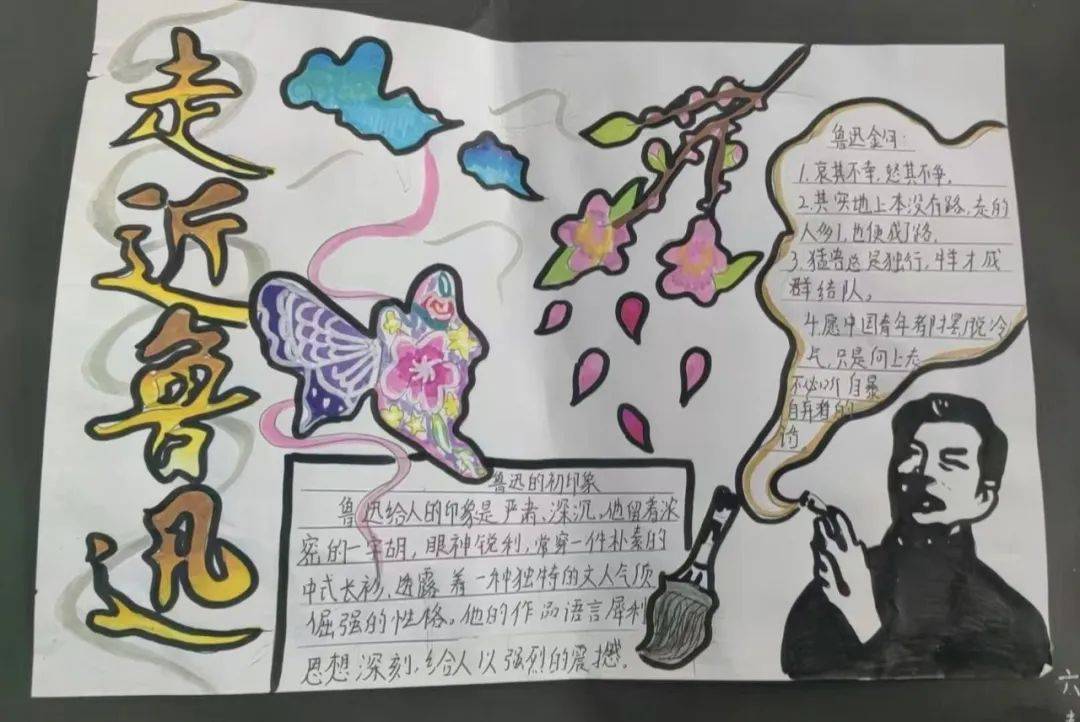 走近鲁迅
鲁迅金句:
1.哀其不幸,怒其不争,
2.其实地上本没有路,走的
人多了,也便成了路.
3.猛兽总是独行,牛羊才成
群结队。
4.愿中国青年都摆脱冷
气,只是向上走
不必听自暴
自弃者的
话
鲁迅的初印象
鲁迅给人的印象是严肃、深沉。他留着浓
密的一字胡,眼神锐利,常穿一件朴素的
中式长衫,透露着一种独特的文人气质
倔强的性格。他的作品语言犀利
思想深刻,给人以强烈的震撼。
六